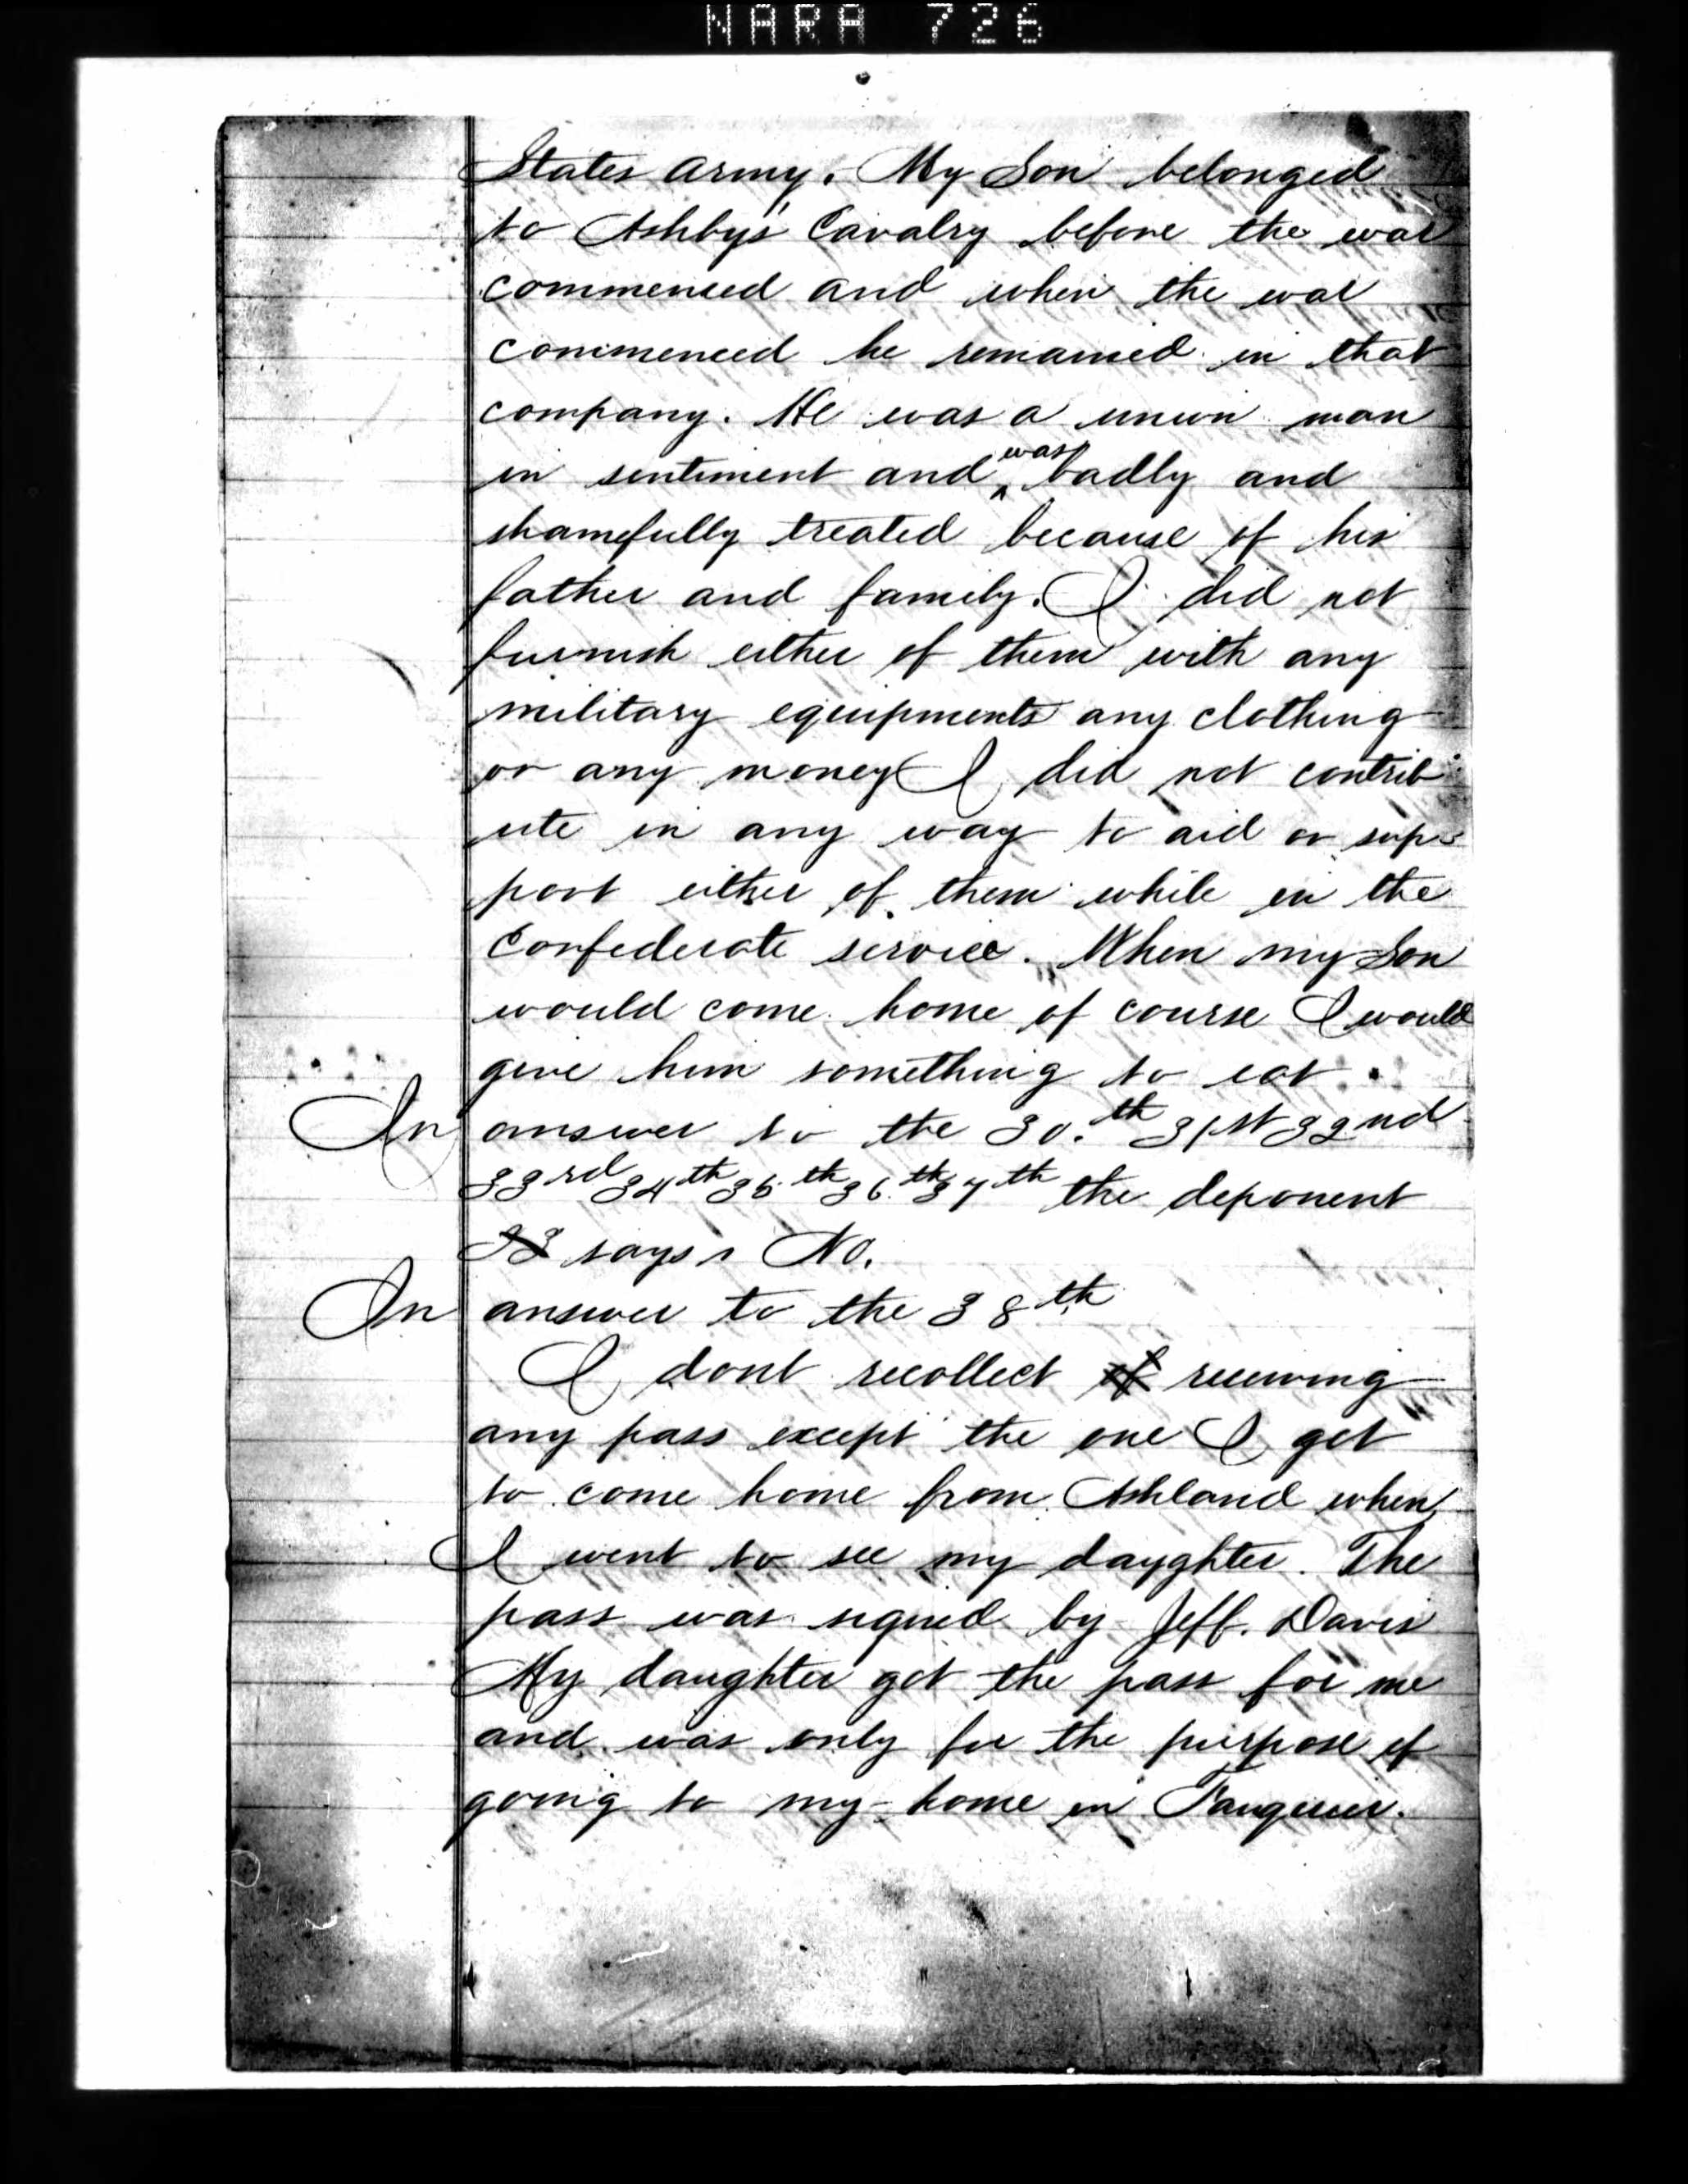 NARA 726
States Army. My Son belonged
to Ashby's Cavalry before the war
commenced and when the war
commenced he remained in that
company. He was a union man
in sentiment and was badly and
shamefully treated because of his
father and family. I did not
furnish either of them with any
military equipments any clothing
or any money I did not contrib
ute in any way to aid or sup-
port either of them while in the
Confederate service. When my Son
would come home of course I would
give him something to eat.
In answer to the 30.th 31st 32nd
33rd 34th 35th 36th 37th the deponent
33 says No.
In answer to the 38th
I dont recollect of receiving
any pass except the one I got
to come home from Ashland when
I went to see my dayghter. The
pass was signed by Jeff. Davis
My daughter got the pass for me
and was only for the purpose of
going to my home in Fauquier.